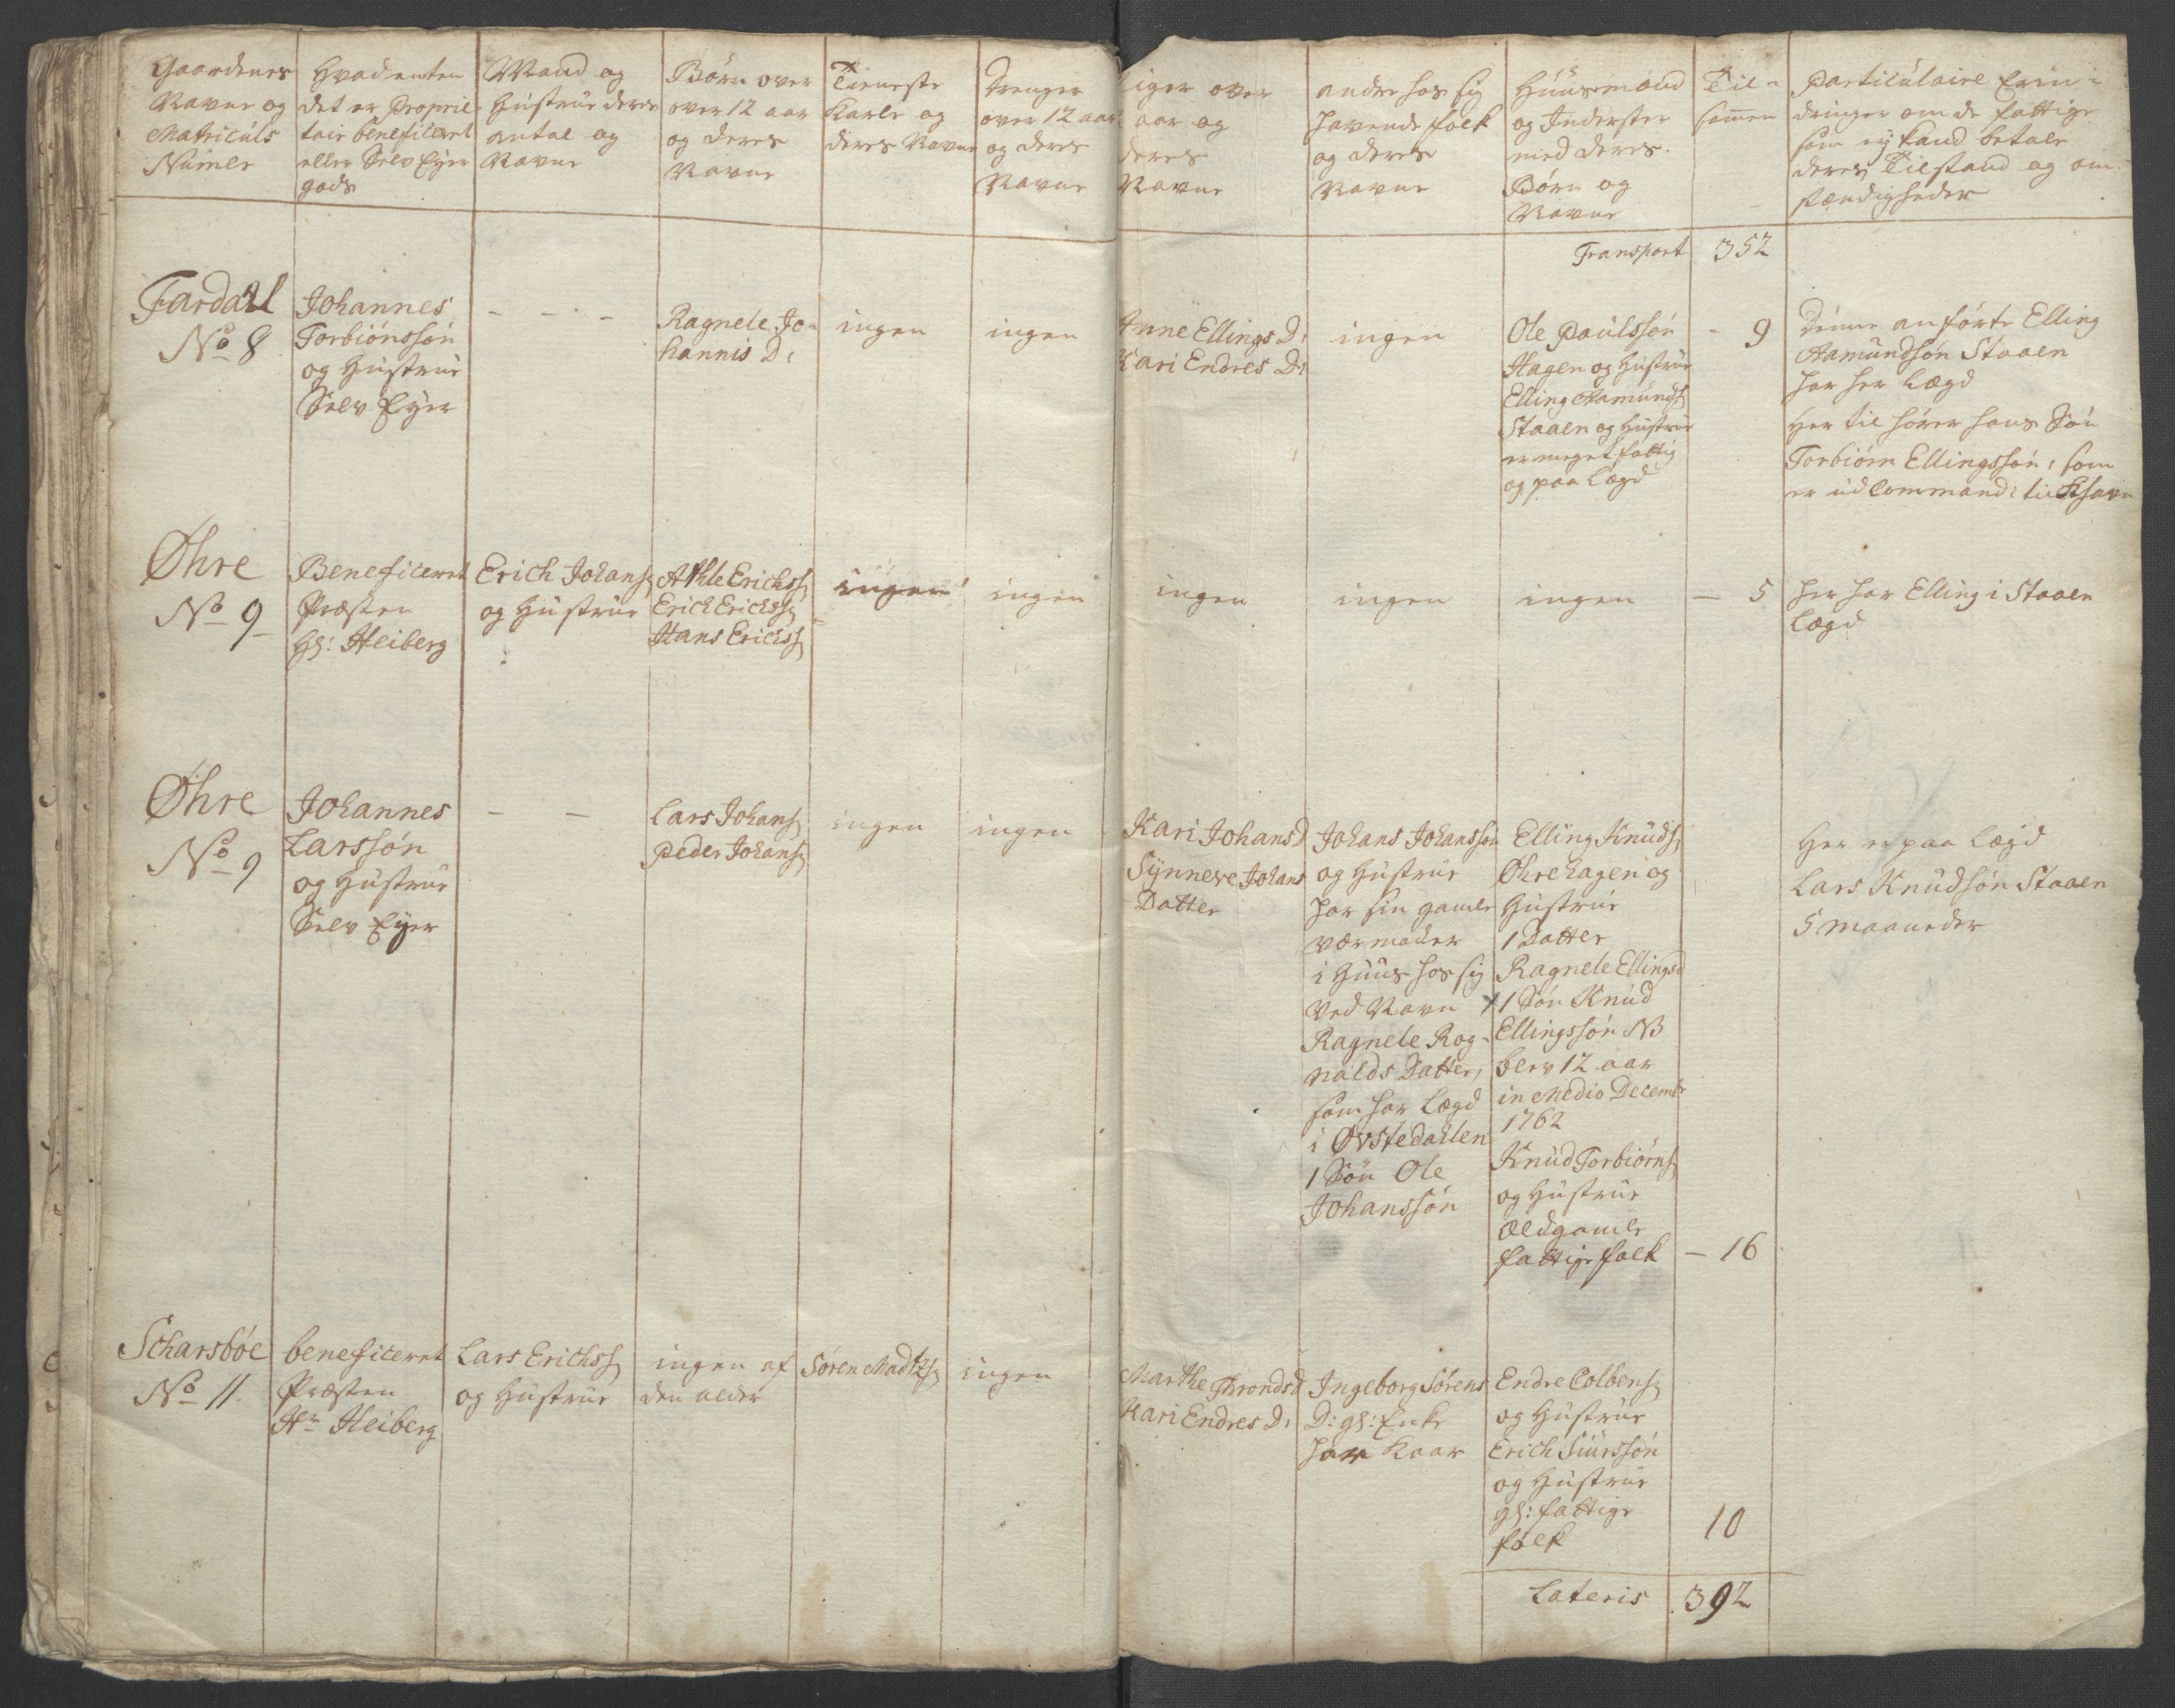 Gaardenes
Navne og
Matriculs
Numer
Hvad enten
det er Proprie
tair beneficeret
eller Selv Eyer
gods
Mand og
Hustrue deres
antal og
Navne
Børn over
over 12 aar
og deres
Navne
Tieneste
Karle og
deres Navne
Drenger
over 12 aar
og deres
Navne
iger over
aar og
deres
Navne
andre hos sig
havende folk
og deres
Navne
Huusmænd
og Inderster
med deres
Børn og
Navne
Til-
sammen
Particulaire Erin-
dringer om de fattige
som ej kand betale
deres Tilstand og om-
stændigheder
Transport 352
Fardall
No 8
Johannes
Torbiönssön
og Hustrue
Selv Eyer
- - -
Ragnele Jo-
hannis D:
ingen
ingen
Anne Ellings D:
Kari Endres D:
ingen
Ole Paulssön
Hagen og Hustrue
Elling Aamunds
Staaen og Hustrue
er meget fattig
og paa Lægd
- 9
Denne anførte Elling
Aamundsön Staaen
har her Lægd
Her til hører hans Sön
Torbiörn Ellingssön, som
er ud Command: til Khavn
Øhre
No 9
Beneficeret
Præsten
Hr: Heiberg
Erich Johans
og Hustrue
Athle Erichss
Erich Erichss
Hans Erichss
ingen
ingen
ingen
ingen
ingen
- 5
her har Elling i Staaen
Lægd
Øhre
No 9
Johannes
Larssön
og Hustrue
Selv Eyer
- -
Lars Johans
Peder Johans
ingen
ingen
Kari Johans D
Synneve Johans
Datter
Johans Johanssön
og Hustrue
har sin gamle
værmoder
i Huus hos sig
ved Navn
Ragnele Rog-
nalds Datter,
som har Lægd
i Øvstedahlen
1 Sön Ole
Johanssön
Elling Knuds
Øhrehagen og
Hustrue
1 Datter
Ragnele Ellingsd
x 1 Sön Knud
Ellingssön NB
blev 12 aar
in Medio Decemb
1762
Knud Torbiörns
og Hustrue
Ældgamle
fattige folk
- 16
Her er paa Lægd
Lars Knudsön Staaen
5 Maaneder
Scharsböe
No 11
beneficeret
Præsten
Hr Heiberg
Lars Erichss
og Hustrue
ingen af
den alder
Søren Madtzs
ingen
Marthe Thronds D
Kari Endres D:
Ingeborg Sörens
D: gl: Enke
har Kaar
Endre Colbens
og Hustrue
Erich Siurssön
og Hustrue
gl: fattige
folk
10
Lateris 392